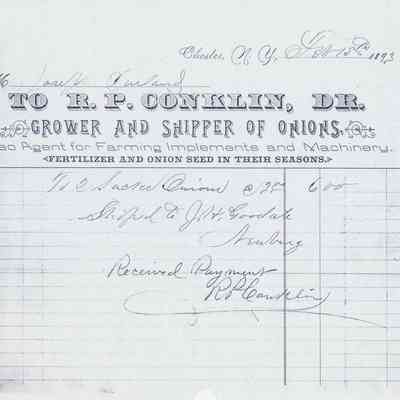 Chester, N. Y., Feb 1893
M Joseph
TO R. P. CONKLIN, DR.
GROWER AND SHIPPER OF ONIONS.
so Agent for Farming Implements and Machinery.
FERTILIZER AND ONION SEED IN THEIR SEASONS.
To Sacks Onions @ 6 00
Shiped to J. H. Goodale
Newburg
Received Payment
R P Conklin